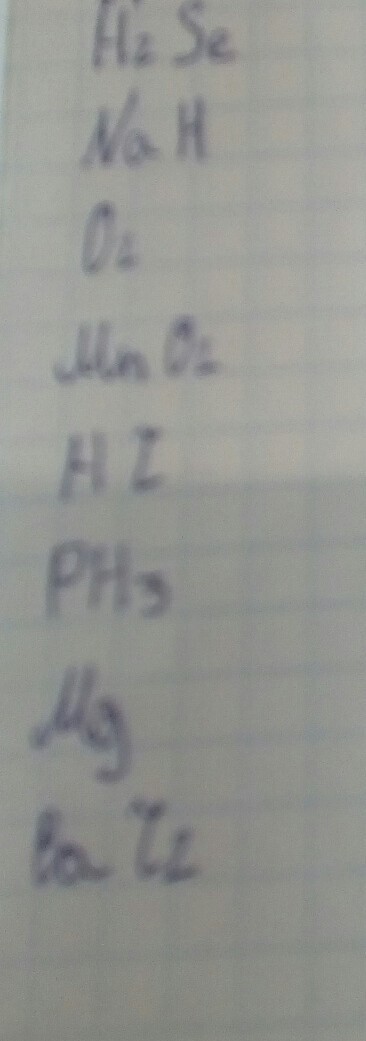 H₂Se
NaH
O₂
MnO₂
HI
PH₃
Mg
BaI₂